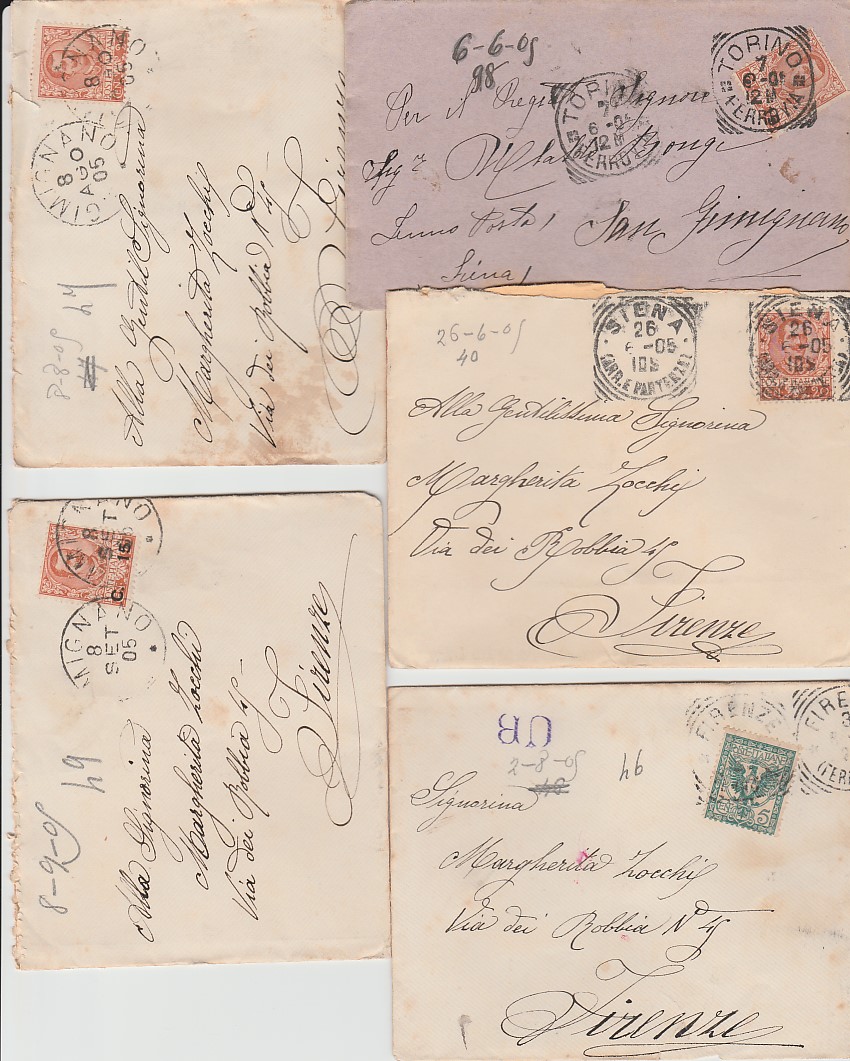 GIMIGNANO
8
AGO
05
8-8-05
47
Alla Gentil Signorina
Margherita Zocchi
Via dei Robbia N 45
Firenze
6-6-05
98
TORINO
7
6-05
12M
FERROVIA
TORINO
7
6-05
12M
FERROVIA
Per il Signor
Sig.r
Fermo Posta
San Gimignano
Siena
26-6-05
40
SIENA
26
6-05
10S
(ARR. E PARTENZE)
SIENA
26
6-05
10S
Alla Gentilissima Signorina
Margherita Zocchi
Via dei Robbia 45
Firenze
MIGNANO
8
SET
05
C. 15
8-9-05
49
Alla Signorina
Margherita Zocchi
Via dei Robbia 45
Firenze
UB
2-8-05
46
FIRENZE
FIRE
(FERR
5
Signorina
Margherita Zocchi
Via dei Robbia N 45
Firenze